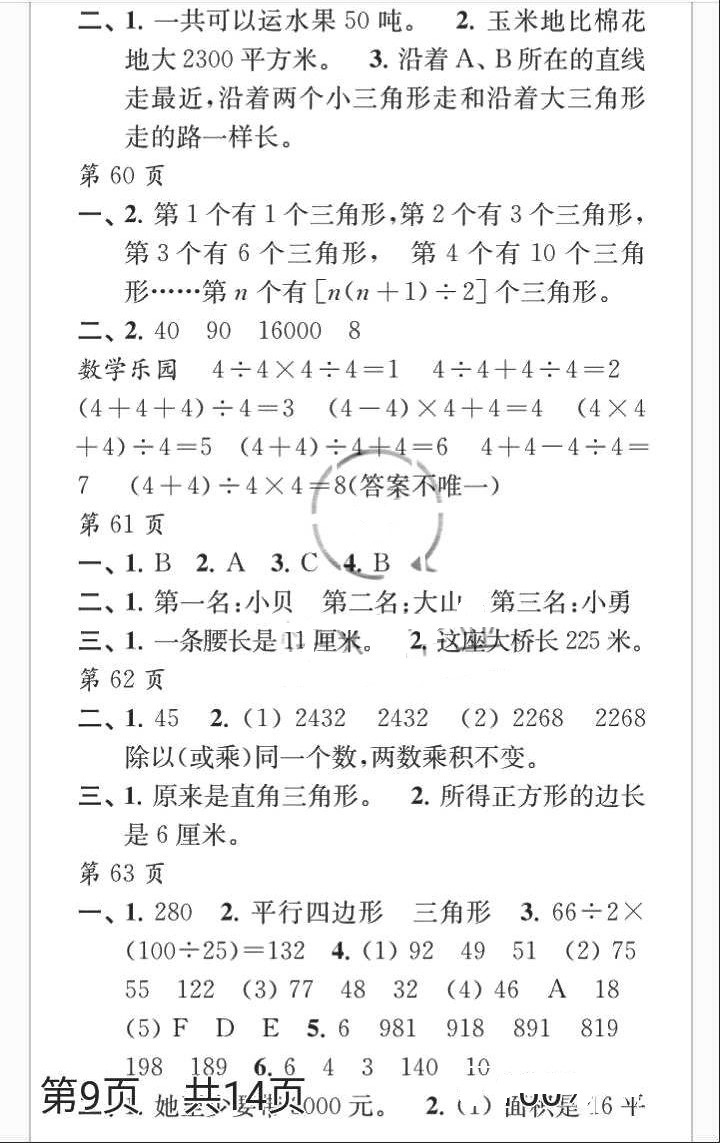 二、1. 一共可以运水果 50 吨。 2. 玉米地比棉花
地大 2300 平方米。 3. 沿着 A、B 所在的直线
走最近,沿着两个小三角形走和沿着大三角形
走的路一样长。
第 60 页
一、2. 第 1 个有 1 个三角形,第 2 个有 3 个三角形,
第 3 个有 6 个三角形, 第 4 个有 10 个三角
形……第 n 个有 [n(n+1)÷2] 个三角形。
二、2. 40 90 16000 8
数学乐园 4÷4×4÷4=1 4÷4+4÷4=2
(4+4+4)÷4=3 (4-4)×4+4=4 (4×4
+4)÷4=5 (4+4)÷4+4=6 4+4-4÷4=
7 (4+4)÷4×4=8(答案不唯一)
第 61 页
一、1. B 2. A 3. C 4. B
二、1. 第一名:小贝 第二名:大山 第三名:小勇
三、1. 一条腰长是 11 厘米。 2. 这座大桥长 225 米。
第 62 页
二、1. 45 2. (1) 2432 2432 (2) 2268 2268
除以(或乘)同一个数,两数乘积不变。
三、1. 原来是直角三角形。 2. 所得正方形的边长
是 6 厘米。
第 63 页
一、1. 280 2. 平行四边形 三角形 3. 66÷2×
(100÷25)=132 4. (1) 92 49 51 (2) 75
55 122 (3) 77 48 32 (4) 46 A 18
(5) F D E 5. 6 981 918 891 819
198 189 6. 6 4 3 140 10
第9页 共14页
1. 她至少要带 000 元。 2. (1) 面积是 16 平